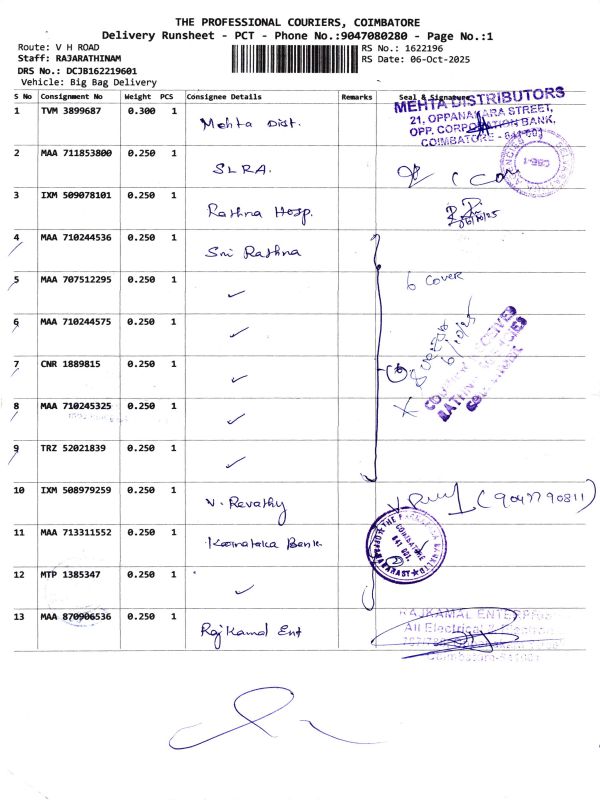 THE PROFESSIONAL COURIERS, COIMBATORE
Delivery Runsheet - PCT - Phone No.:9047080280 - Page No.:1
Route: V H ROAD
Staff: RAJARATHINAM
DRS No.: DCJB162219601
Vehicle: Big Bag Delivery
RS No.: 1622196
RS Date: 06-Oct-2025
S No Consignment No Weight PCS Consignee Details Remarks Seal & Signature
1 TVM 3899687 0.300 1 Mehta Dist.
MEHTA DISTRIBUTORS
21, OPPANAKARA STREET,
OPP. CORPORATION BANK,
COIMBATORE - 641 001
2 MAA 711853800 0.250 1 SLRA.
3 IXM 509078101 0.250 1 Rathna Hosp.
6/10/25
4 MAA 710244536 0.250 1 Sri Rathna
5 MAA 707512295 0.250 1 ✓ 6 cover
6 MAA 710244575 0.250 1 ✓
6/10/25
7 CNR 1889815 0.250 1 ✓
8 MAA 710245325 0.250 1 ✓
9 TRZ 52021839 0.250 1 ✓
10 IXM 508979259 0.250 1 V. Revathy (9047790811)
11 MAA 713311552 0.250 1 Karnataka Bank.
COIMBATORE
641 001.
12 MTP 1385347 0.250 1 ✓
13 MAA 870906536 0.250 1 Raj Kamal Ent
RAJKAMAL ENTERPRISES
All Electrical &
Coimbatore-641001